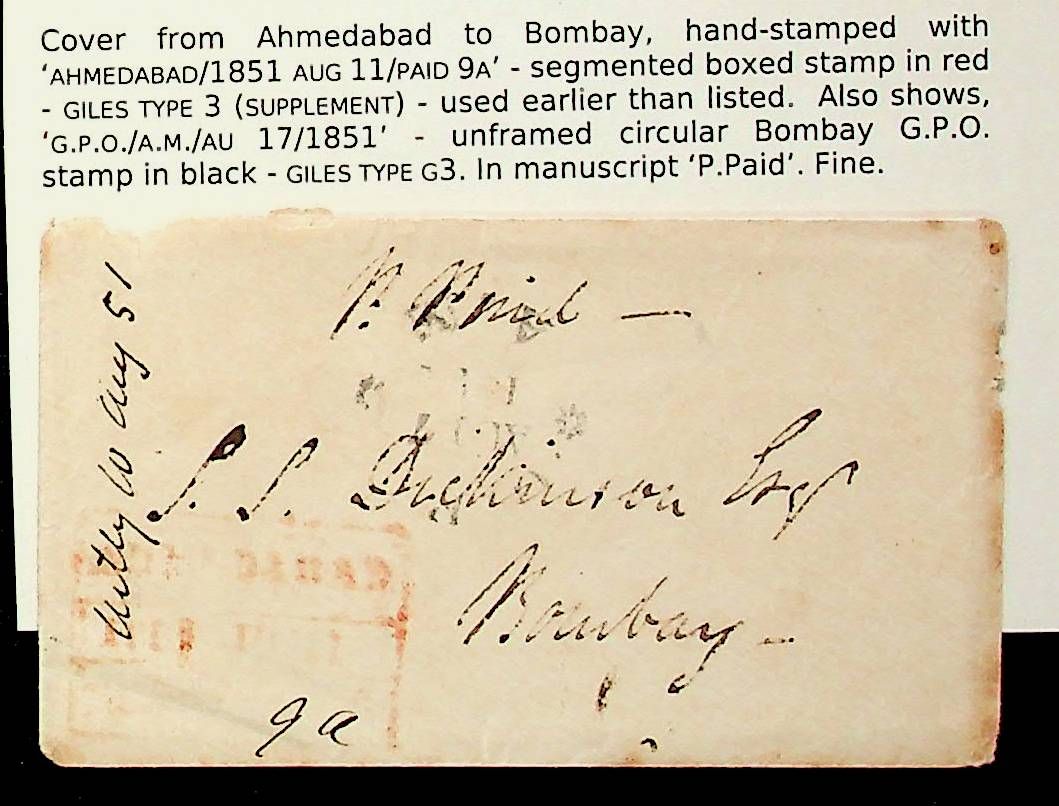 Cover from Ahmedabad to Bombay, hand-stamped with
‘AHMEDABAD/1851 AUG 11/PAID 9A’ - segmented boxed stamp in red
- GILES TYPE 3 (SUPPLEMENT) - used earlier than listed. Also shows,
‘G.P.O./A.M./AU 17/1851’ - unframed circular Bombay G.P.O.
stamp in black - GILES TYPE G3. In manuscript ‘P.Paid’. Fine.
P. Paid —
10 Aug 51
S. S. Dickinson Esq
Bombay -
9 a